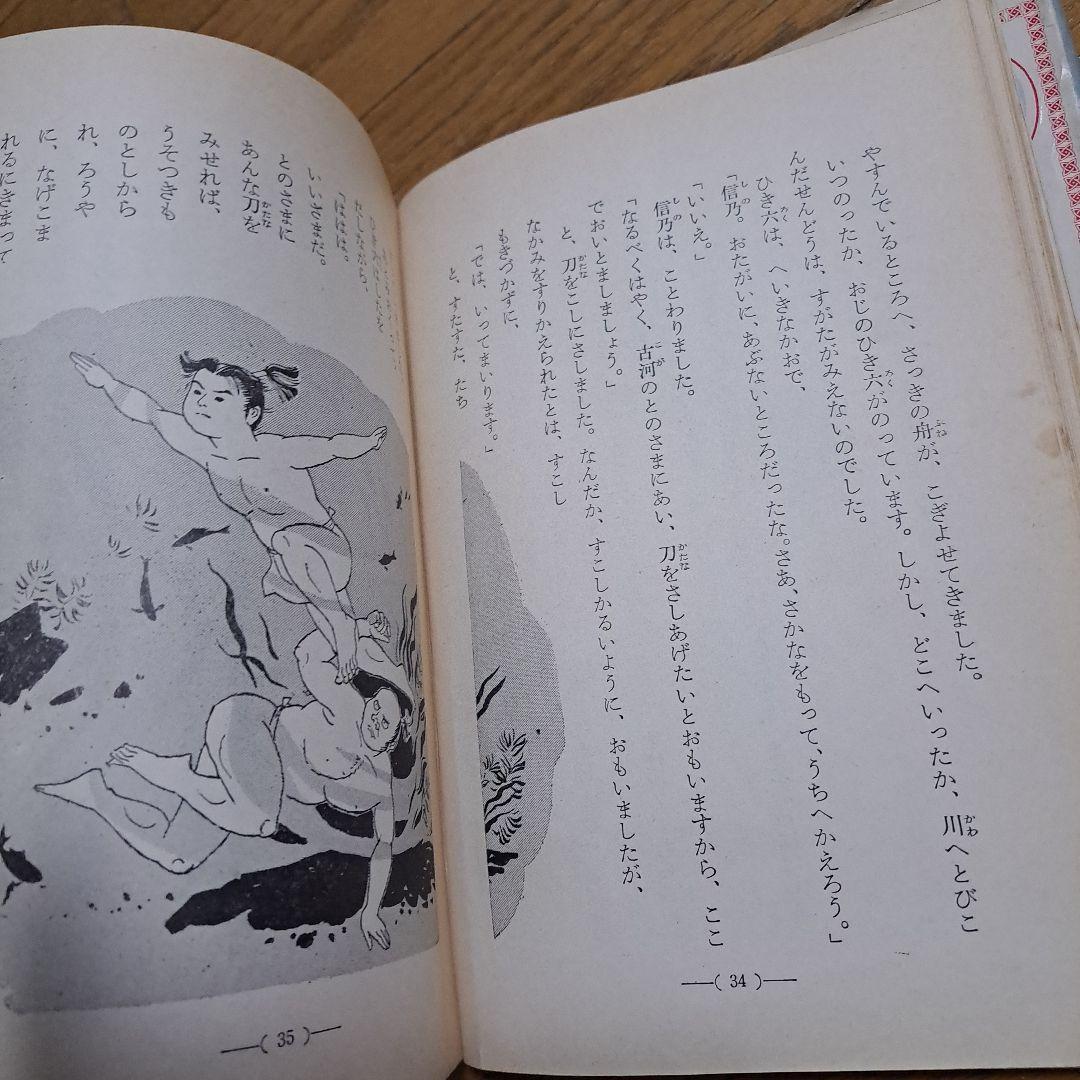 やすんでいるところへ、さっきの舟が、こぎよせてきました。
いつのったか、おじのひき六がのっています。しかし、どこへいったか、川へとびこ
んだせんどうは、すがたがみえないのでした。
ひき六は、へいきなかおで、
「信乃。おたがいに、あぶないところだったな。さあ、さかなをもって、うちへかえろう。」
「いいえ。」
信乃は、ことわりました。
「なるべくはやく、古河のとのさまにあい、刀をさしあげたいとおもいますから、ここ
でおいとましましょう。」
と、刀をこしにさしました。なんだか、すこしかるいように、おもいましたが、
なかみをすりかえられたとは、すこし
もきづかずに、
「では、いってまいります。」
と、すたすた、たち
(34)
「ははは。
いいさまだ。
とのさまに
あんな刀を
みせれば、
うそつきも
のとしから
れ、ろうや
に、なげこま
れるにきまって
(35)